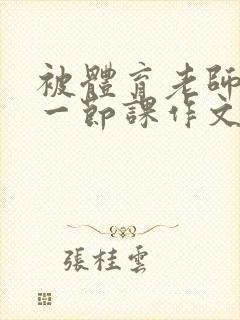 被體育老師
一節課作文
張桂雲